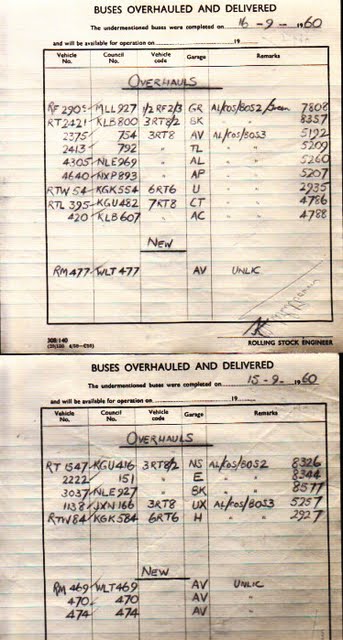 BUSES OVERHAULED AND DELIVERED
The undermentioned buses were completed on 16-9-1960
and will be available for operation on 19
Vehicle No. Council No. Vehicle code Garage Remarks
OVERHAULS
RF 290 MLL927 1/2RF2/3 GR AL/COS/BOS2/ 7808
RT 2421 KLB800 3RT8/2 BK " " 8357
2375 754 3RT8 AV AL/COS/BOS3 5192
2413 792 " TL " " 5209
4305 NLE969 " AL " " 5260
4640 NXP893 " AP " " 5207
RTW 54 KGK554 6RT6 U " " 2935
RTL 395 KGU482 7RT8 CT " " 4786
420 KLB607 " AC " " 4788
NEW
RM 477 WLT 477 AV UNLIC
308/140
ROLLING STOCK ENGINEER
BUSES OVERHAULED AND DELIVERED
The undermentioned buses were completed on 15-9-1960
and will be available for operation on 19
Vehicle No. Council No. Vehicle code Garage Remarks
OVERHAULS
RT 1547 KGU416 3RT8/2 NS AL/COS/BOS2 8326
2222 151 " E " " 8344
3037 NLE927 " BK " " 8577
1138 JXN166 3RT8 UX AL/COS/BOS3 5257
RTW84 KGK584 6RT6 H " " 2927
NEW
RM 469 WLT469 AV UNLIC
470 470 AV "
474 474 AV "